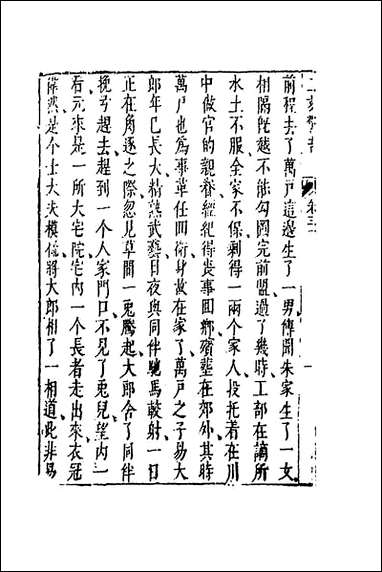 前程去了萬戶這邊生了一男傳聞朱家生了一女
相隔旣遠不能勾圖完前盟過了幾時工部在謫所
水土不服全家不保剩得一兩個家人投托着在川
中做官的親眷經紀得喪事回鄉殯塟在郊外其時
萬戶也爲事革任回衛身故在家了萬戶之子易大
郎年已長大精熟武藝日夜與同伴馳馬較射一日
正在角逐之際忽見草間一兔騰起大郎舍了同伴
挽弓趕去趕到一个人家門口不見了兔兒望內一
看元來是一所大宅院宅內一个長者走出來衣冠
偉然是个士大夫模樣將大郎相了一相道此非易